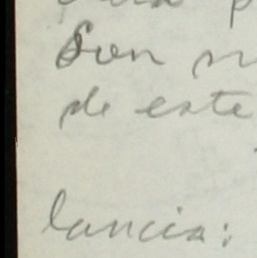 Son
de este
lancia: